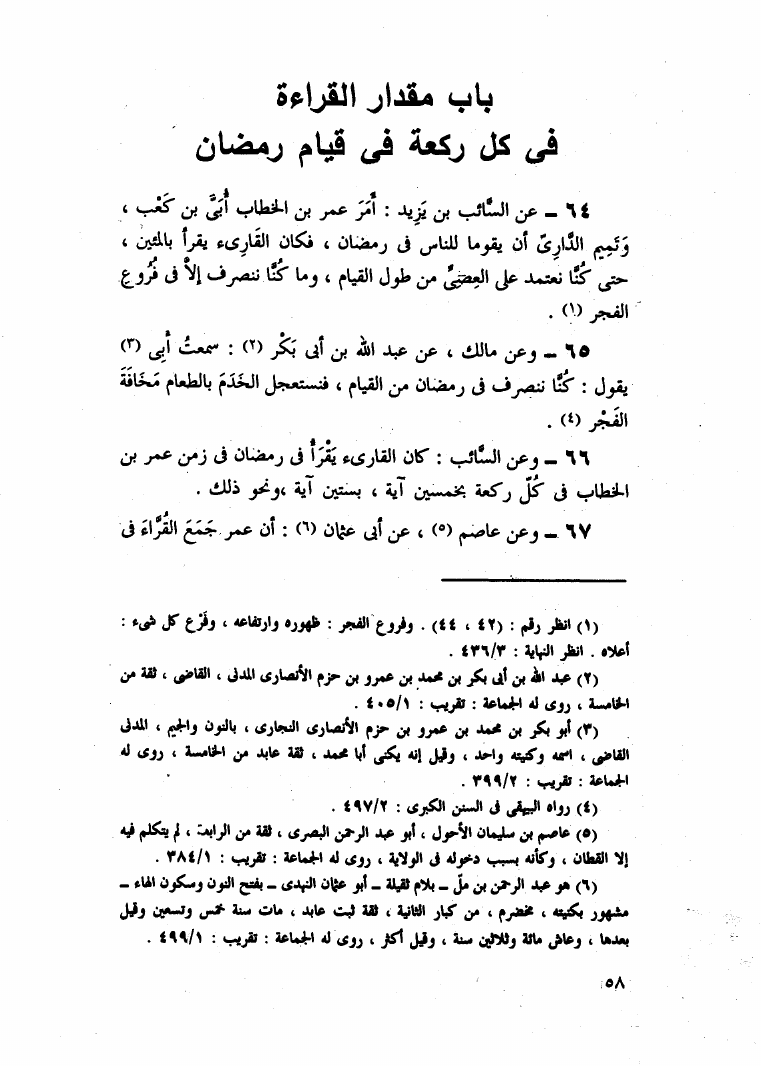 باب مقدار القراءة
فى كل ركعة فى قيام رمضان
٦٤ ــ عن السَّائب بن يَزِيد : أَمَرَ عمر بن الخطاب أُبَىَّ بن كَعْب ،
وَتَمِيم الدَّارِىّ أن يقوما للناس فى رمضان ، فكان القَارِىء يقرأ بالمئين ،
حتى كُنَّا نعتمد على العِصِىِّ من طول القيام ، وما كُنَّا ننصرف إلاَّ فى فُرُوعِ
الفجر (١) .
٦٥ ــ وعن مالك ، عن عبد الله بن أبى بَكْر (٢) : سمعتُ أَبِى (٣)
يقول : كُنَّا ننصرف فى رمضان من القيام ، فنستعجل الخَدَمَ بالطعام مَخَافَةَ
الفَجْر (٤) .
٦٦ ــ وعن السَّائب : كان القارىء يَقْرَأُ فى رمضان فى زمن عمر بن
الخطاب فى كُلّ ركعة بخمسين آية ، بستين آية ،ونحو ذلك .
٦٧ ــ وعن عاصم (٥) ، عن أبى عثمان (٦) : أن عمر جَمَعَ القُرَّاءَ فى
(١) انظر رقم : (٤٢ ، ٤٤) . وفروع الفجر : ظهوره وارتفاعه ، وفَرْع كل شىء :
أعلاه . انظر النهاية : ٤٣٦/٣ .
(٢) عبد الله بن أبى بكر بن محمد بن عمرو بن حزم الأنصارى المدنى ، القاضى ، ثقة من
الخامسة ، روى له الجماعة : تقريب : ٤٠٥/١ .
(٣) أبو بكر بن محمد بن عمرو بن حزم الأنصارى النجارى ، بالنون والجيم ، المدنى
القاضى ، اسمه وكنيته واحد ، وقيل إنه يكنى أبا محمد ، ثقة عابد من الخامسة ، روى له
الجماعة : تقريب : ٣٩٩/٢ .
(٤) رواه البيهقى فى السنن الكبرى : ٤٩٧/٢ .
(٥) عاصم بن سليمان الأحول ، أبو عبد الرحمن البصرى ، ثقة من الرابعة ، لم يتكلم فيه
إلا القطان ، وكأنه بسبب دخوله فى الولاية ، روى له الجماعة : تقريب : ٣٨٤/١ .
(٦) هو عبد الرحمن بن ملّ ــ بلام ثقيلة ــ أبو عثمان النهدى ــ بفتح النون وسكون الهاء ــ
مشهور بكنيته ، مخضرم ، من كبار الثانية ، ثقة ثبت عابد ، مات سنة خمس وتسعين وقيل
بعدها ، وعاش مائة وثلاثين سنة ، وقيل أكثر ، روى له الجماعة : تقريب : ٤٩٩/١ .
٥٨